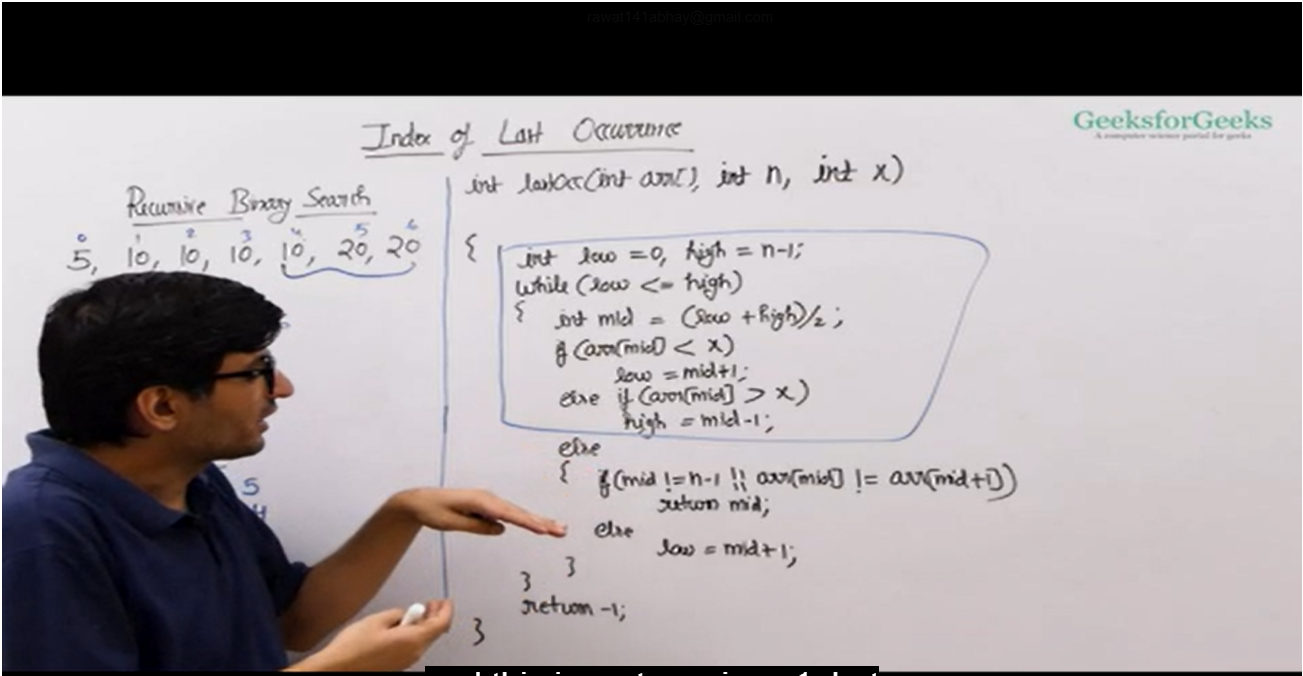 rawat141abhay@gmail.com
GeeksforGeeks
A computer science portal for geeks
Index of Last Occurrence
Recursive Binary Search
0 1 2 3 4 5 6
5, 10, 10, 10, 10, 20, 20
5
int lastOcc(int arr[], int n, int x)
{
int low =0, high = n-1;
while (low <= high)
{ int mid = (low +high)/2;
if (arr[mid] < x)
low = mid+1;
else if (arr[mid] > x)
high = mid-1;
else
{ if(mid != n-1 || arr[mid] != arr[mid+1])
return mid;
else
low = mid+1;
}
}
return -1;
}